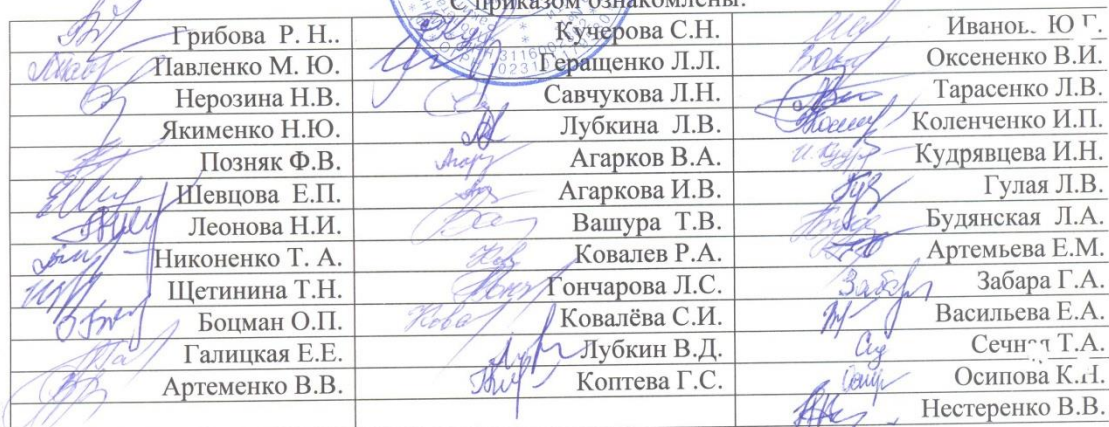 С приказом ознакомлены:
Грибова Р. Н.. Кучерова С.Н. Иванов Ю Г.
Павленко М. Ю. Геращенко Л.Л. Оксененко В.И.
Нерозина Н.В. Савчукова Л.Н. Тарасенко Л.В.
Якименко Н.Ю. Лубкина Л.В. Коленченко И.П.
Позняк Ф.В. Агарков В.А. Кудрявцева И.Н.
Шевцова Е.П. Агаркова И.В. Гулая Л.В.
Леонова Н.И. Вашура Т.В. Будянская Л.А.
Никоненко Т. А. Ковалев Р.А. Артемьева Е.М.
Щетинина Т.Н. Гончарова Л.С. Забара Г.А.
Боцман О.П. Ковалёва С.И. Васильева Е.А.
Галицкая Е.Е. Лубкин В.Д. Сечная Т.А.
Артеменко В.В. Коптева Г.С. Осипова К.Н.
Нестеренко В.В.